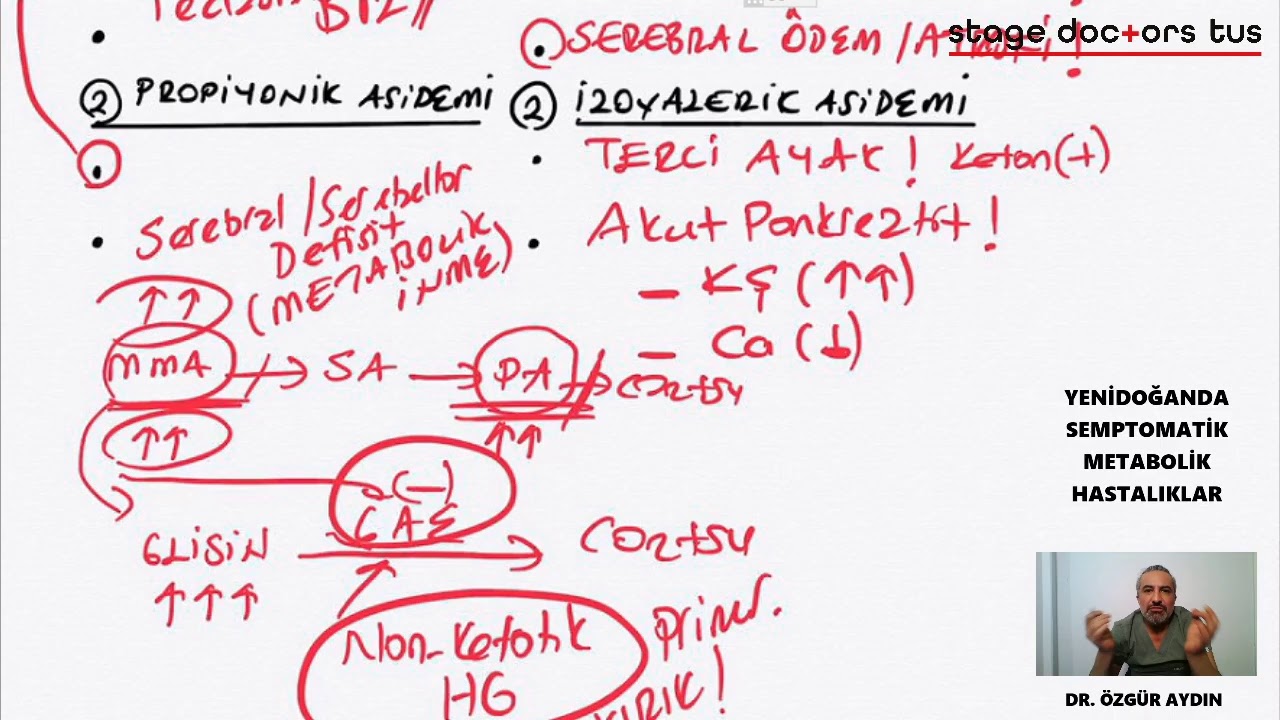 stage doc+ors tus
B12//
SEREBRAL ÖDEM /
② PROPİYONİK ASİDEMİ
Serebral / Serebellar
Defisit
(METABOLİK
İNME)
↑↑
MMA → SA → PA → CO2+SU
↑↑
↑↑
(—)
GLİSİN
CO2+SU
↑↑↑
Non-Ketotik
HG
primer.
② İZOVALERİK ASİDEMİ
TERLİ AYAK! Keton(+)
Akut Pankreatit!
– KŞ (↑↑)
– Ca (↓)
YENİDOĞANDA
SEMPTOMATİK
METABOLİK
HASTALIKLAR
DR. ÖZGÜR AYDIN